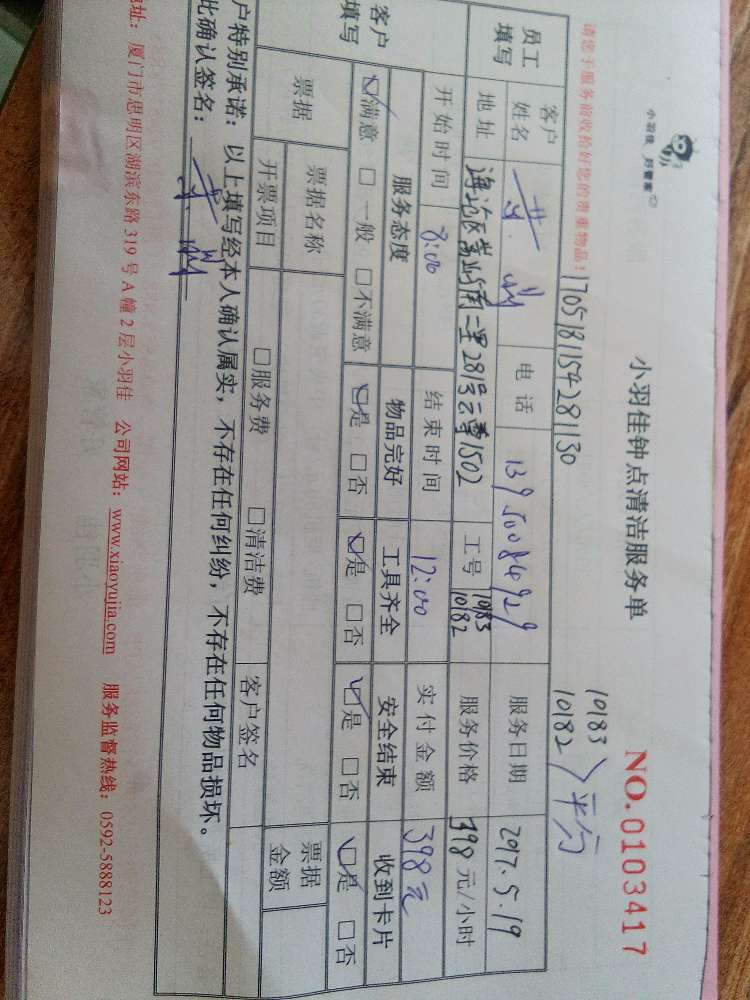 小羽佳 好管家
小羽佳钟点清洁服务单
NO.0103417
请您于服务前收拾好您的贵重物品!
1705181154281130
10183
10182 平分
员工填写
客户姓名 电话 13950084929 服务日期 2017.5.19
地址 二里281号 1502 工号 10183 10182 服务价格 398 元/小时
开始时间 8:00 结束时间 12:00 实付金额 398元
客户填写
服务态度 物品完好 工具齐全 安全结束 收到卡片
☑满意 □一般 □不满意 ☑是 □否 ☑是 □否 ☑是 □否 ☑是 □否
票据 票据名称 票据金额
开票项目 □服务费 □清洁费 客户签名
户特别承诺:以上填写经本人确认属实,不存在任何纠纷,不存在任何物品损坏。
此确认签名:
地址:厦门市思明区湖滨东路319号A幢2层小羽佳 公司网站:www.xiaoyujia.com 服务监督热线:0592-5888123